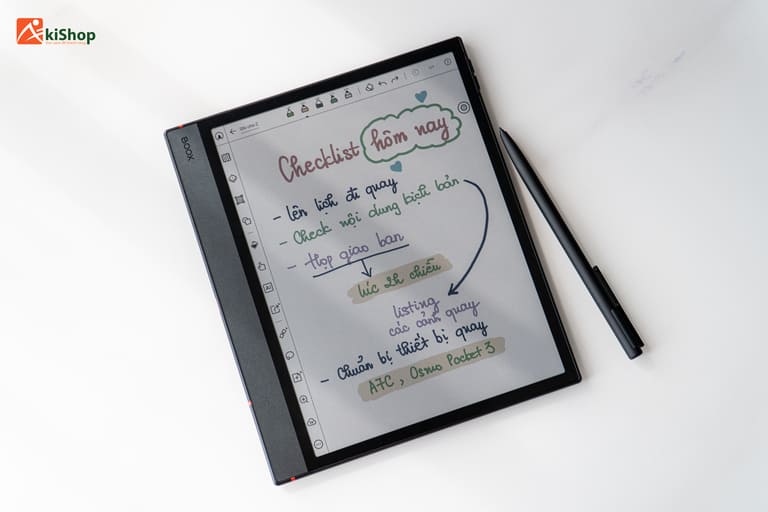 AkiShop
BOOX
Checklist hôm nay
- lên lịch đi quay
- Check nội dung kịch bản
- Họp giao ban
lúc 2h chiều
listing
các cảnh quay
- Chuẩn bị thiết bị quay
A7C, Osmo Pocket 3